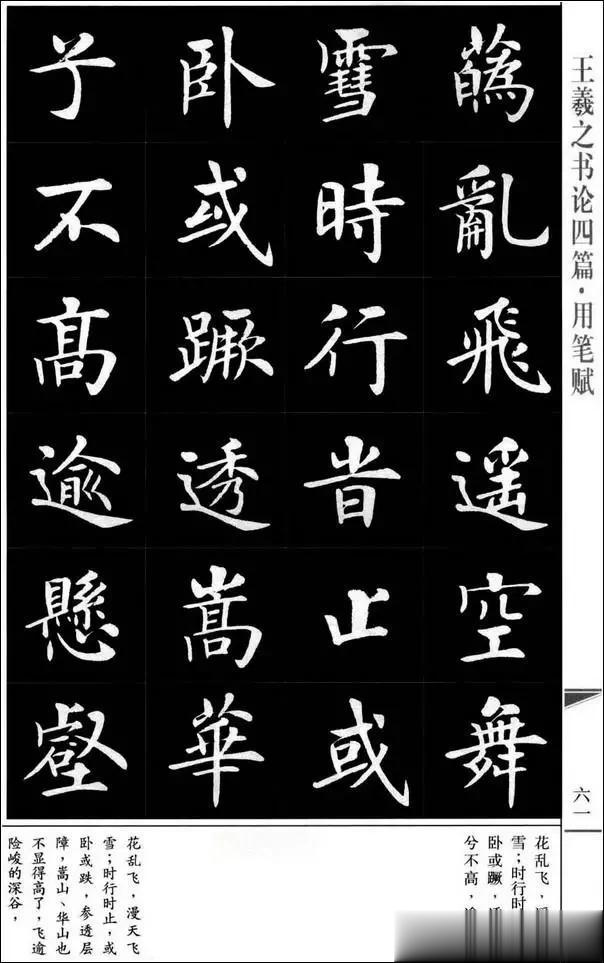 王羲之书论四篇·用笔赋
六一
蘤亂飛遥空舞
雪時行旹止或
卧或蹶透嵩華
兮不高逾懸壑
花乱飞，
雪；时行时
卧或蹶，
兮不高，
花乱飞，漫天飞
雪；时行时止，或
卧或跌，参透层
障，嵩山、华山也
不显得高了，飞逾
险峻的深谷，